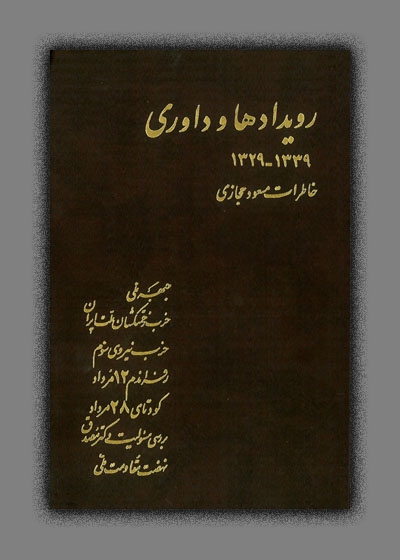 رویدادها و داوری
۱۳۲۹-۱۳۳۹
خاطرات مسعود حجازی
جبهه ملی
حزب زحمتکشان ملت ایران
حزب نیروی سوم
رفراندم ۱۲ مرداد
کودتای ۲۸ مرداد
بررسی مسئولیت دکتر مصدق
نهضت مقاومت ملی